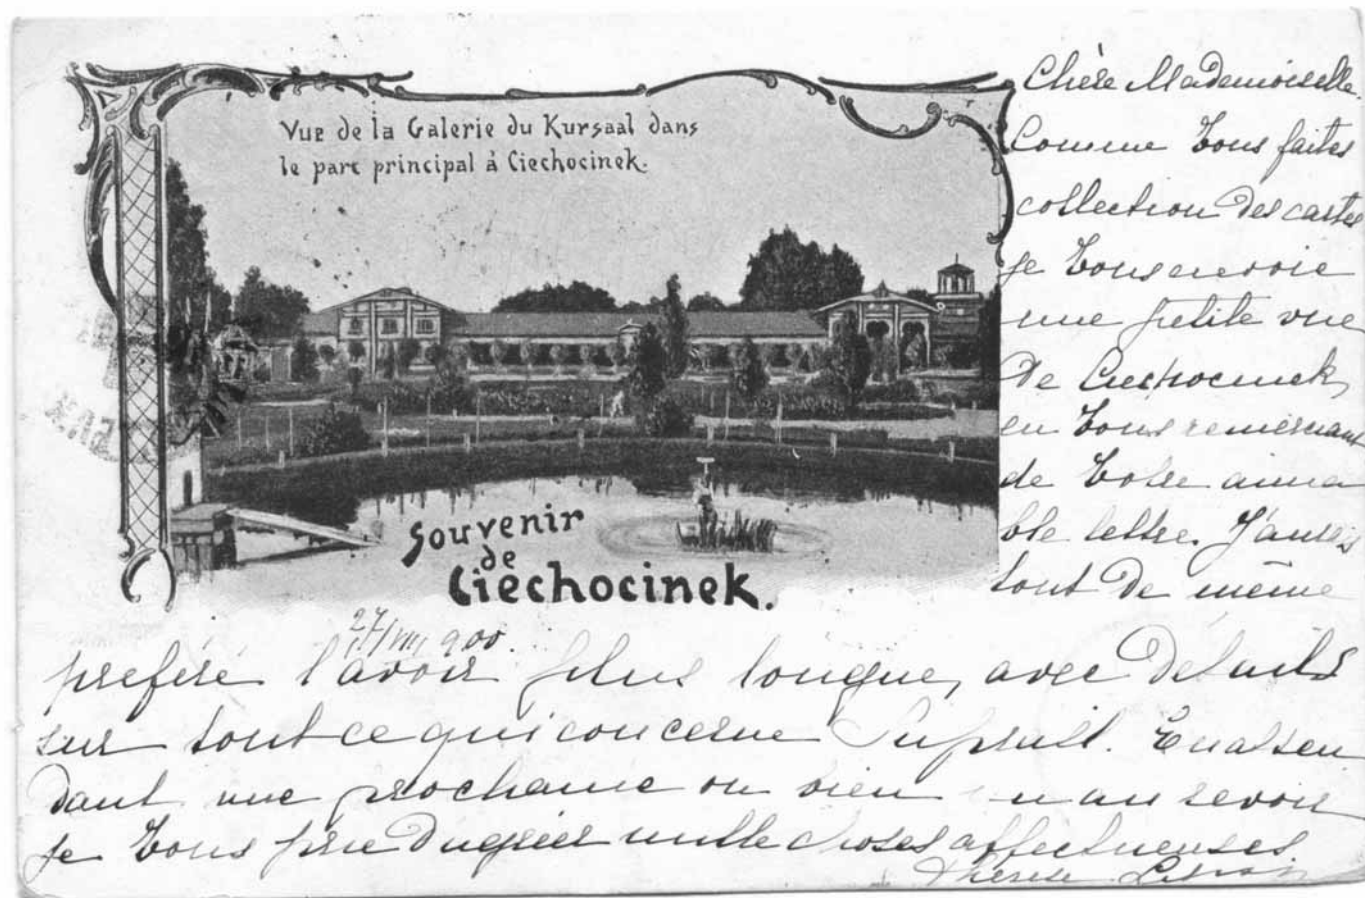 Vue de la Galerie du Kursaal dans
le parc principal à Ciechocinek.
Souvenir
de
Ciechocinek.
27/VIII 900.
Chère Mademoiselle.
Comme vous faites
collection des cartes
je vous envoie
une petite vue
de Ciechocinek,
en vous remerciant
de votre aima
ble lettre. J'aurais
tout de même
preféré l'avoir plus longue, avec détails
sur tout ce qui concerne
En atten
dant une prochaine ou bien un au revoir
je vous prie d'agréer mille choses affectueuses
Thérèse